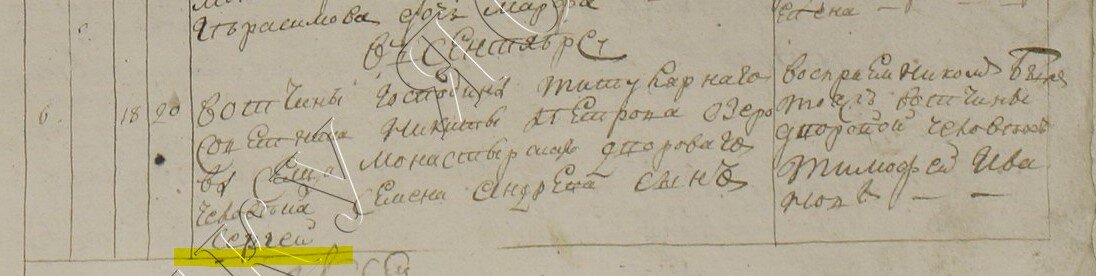 Герасимова дочь Марфа
в Сентябре
6. 18 20 вотчины Господина титулярнаго
советника Никиты Петрова Озеро
ва Села Монастырскаго двороваго
человека Семена Андреева сынъ
Сергей
воспреемникомъ былъ
тоежъ вотчины
дворовой человекъ
Тимофей Ива
новъ